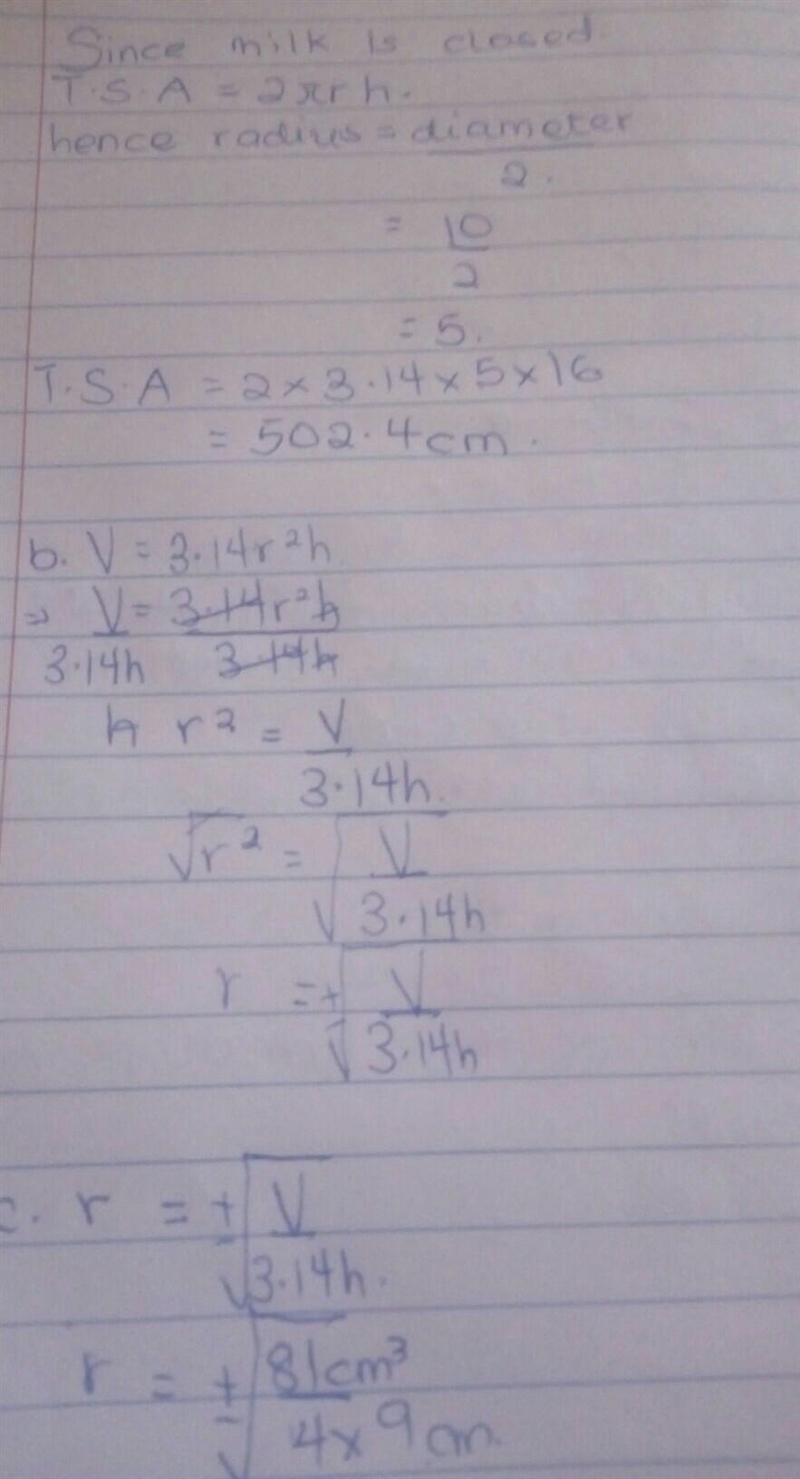 Since milk is closed.
T.S.A = 2πrh.
hence radius = diameter
2.
= 10
2
= 5.
T.S.A = 2×3.14×5×16
= 502.4cm.
b. V = 3.14r²h
⇒ V = 3.14r²h
3.14h 3.14h
h r² = V
3.14h.
√r² = √V
3.14h
r = ±√V
3.14h
c. r = ±√V
3.14h.
r = ±√81cm³
4×9cm